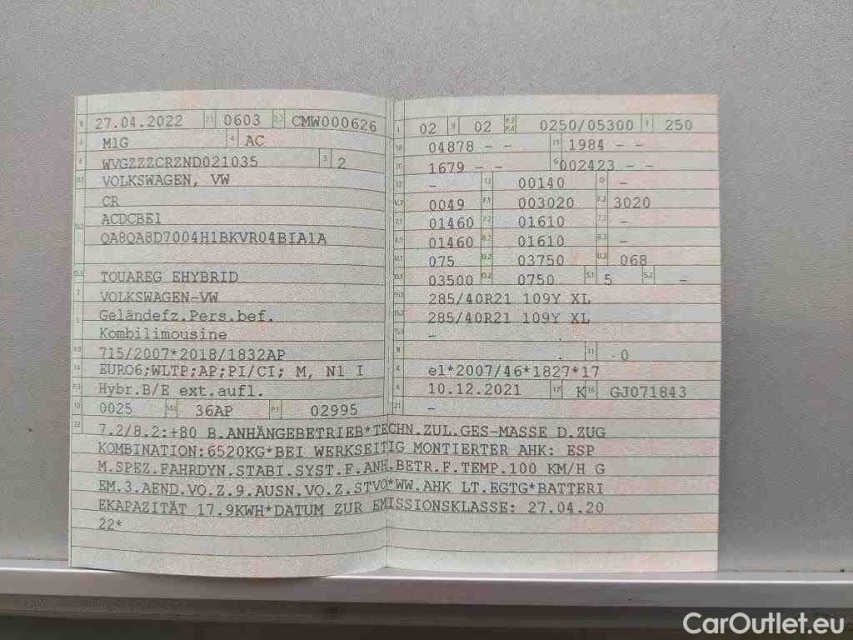 27.04.2022 0603 CMW000626
M1G AC
WVGZZZCRZND021035 2
VOLKSWAGEN, VW
CR
ACDCBE1
QA8QA8D7004H1BKVR04BIA1A
TOUAREG EHYBRID
VOLKSWAGEN-VW
Geländefz.Pers.bef.
Kombilimousine
715/2007*2018/1832AP
EURO6;WLTP;AP;PI/CI; M, N1 I
Hybr.B/E ext.aufl.
0025 36AP 02995
02 02 0250/05300 250
04878 - - 1984 - -
1679 - - 002423 - -
- 00140 -
0049 003020 3020
01460 01610 -
01460 01610 -
075 03750 068
03500 0750 5 -
285/40R21 109Y XL
285/40R21 109Y XL
-
- 0
e1*2007/46*1827*17
10.12.2021 K GJ071843
-
7.2/8.2:+80 B.ANHÄNGEBETRIEB*TECHN.ZUL.GES-MASSE D.ZUG
KOMBINATION:6520KG*BEI WERKSEITIG MONTIERTER AHK: ESP
M.SPEZ.FAHRDYN.STABI.SYST.F.ANH.BETR.F.TEMP.100 KM/H G
EM.3.AEND.VO.Z.9.AUSN.VO.Z.STVO*WW.AHK LT.EGTG*BATTERI
EKAPAZITÄT 17.9KWH*DATUM ZUR EMISSIONSKLASSE: 27.04.20
22*
CarOutlet.eu